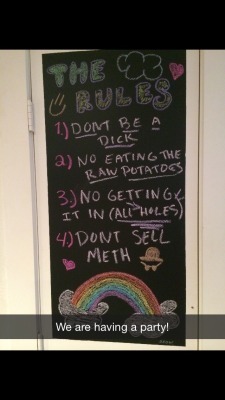 THE
RULES
1.) DONT BE A
DICK
2.) NO EATING THE
RAW POTATOES
3.) NO GETTING
IT IN (ALL HOLES)
4.) DONT SELL
METH
We are having a party!